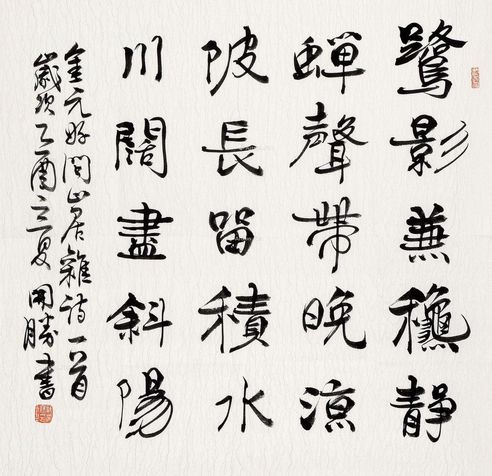 鷺影兼穐靜
蟬聲帶晚涼
陂長留積水
川闊盡斜陽
金元好問山居雜詩一首
歲次乙酉之夏 開勝書